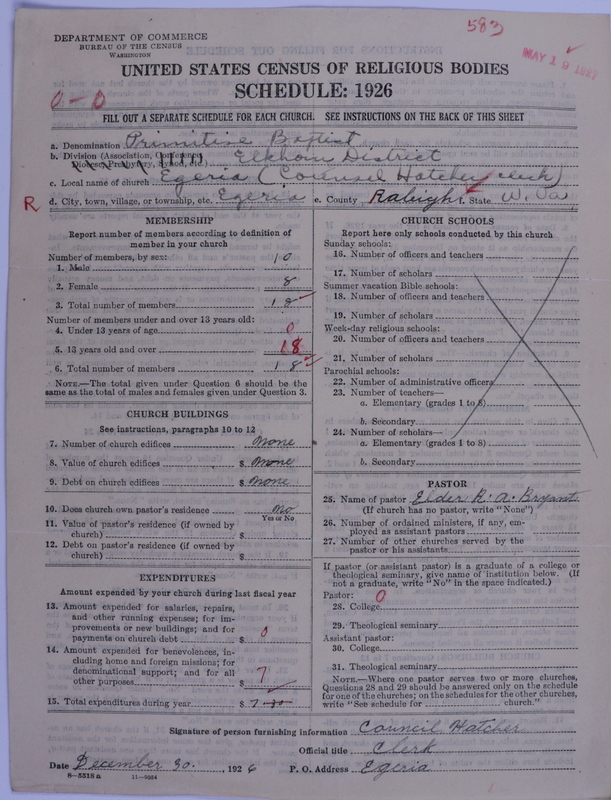 583
DEPARTMENT OF COMMERCE
BUREAU OF THE CENSUS
WASHINGTON
MAY 19 1927
UNITED STATES CENSUS OF RELIGIOUS BODIES
SCHEDULE: 1926
0-0
FILL OUT A SEPARATE SCHEDULE FOR EACH CHURCH. SEE INSTRUCTIONS ON THE BACK OF THIS SHEET
a. Denomination Primitive Baptist
b. Division (Association, Conference, Diocese, Presbytery, Synod, etc.) Elkhorn District
c. Local name of church Egeria (Counsel Hatcher clerk)
R d. City, town, village, or township, etc. Egeria e. County Raleigh f. State W. Va.
MEMBERSHIP
Report number of members according to definition of member in your church
Number of members, by sex:
1. Male 10
2. Female 8
3. Total number of members 18
Number of members under and over 13 years old:
4. Under 13 years of age 0
5. 13 years old and over 18
6. Total number of members 18
NOTE.—The total given under Question 6 should be the same as the total of males and females given under Question 3.
CHURCH BUILDINGS
See instructions, paragraphs 10 to 12
7. Number of church edifices none
8. Value of church edifices $ none
9. Debt on church edifices $ none
10. Does church own pastor's residence? no
Yes or No
11. Value of pastor's residence (if owned by church) $
12. Debt on pastor's residence (if owned by church) $
EXPENDITURES
Amount expended by your church during last fiscal year
13. Amount expended for salaries, repairs, and other running expenses; for improvements or new buildings; and for payments on church debt $ 0
14. Amount expended for benevolences, including home and foreign missions; for denominational support; and for all other purposes $ 7
15. Total expenditures during year $ 7
CHURCH SCHOOLS
Report here only schools conducted by this church
Sunday schools:
16. Number of officers and teachers
17. Number of scholars
Summer vacation Bible schools:
18. Number of officers and teachers
19. Number of scholars
Week-day religious schools:
20. Number of officers and teachers
21. Number of scholars
Parochial schools:
22. Number of administrative officers
23. Number of teachers—
a. Elementary (grades 1 to 8)
b. Secondary
24. Number of scholars—
a. Elementary (grades 1 to 8)
b. Secondary
PASTOR
25. Name of pastor Elder R. A. Bryant
(If church has no pastor, write "None")
26. Number of ordained ministers, if any, employed as assistant pastors
27. Number of other churches served by the pastor or his assistants
If pastor (or assistant pastor) is a graduate of a college or theological seminary, give name of institution below. (If not a graduate, write "No" in the space indicated.)
Pastor: 0
28. College
29. Theological seminary
Assistant pastor:
30. College
31. Theological seminary
NOTE.—Where one pastor serves two or more churches, Questions 28 and 29 should be answered only on the schedule for one of the churches; on the schedules for the other churches, write "See schedule for ............ church."
Signature of person furnishing information Council Hatcher
Official title Clerk
Date December 30, 1926 P. O. Address Egeria
8—5518 a 11—9084